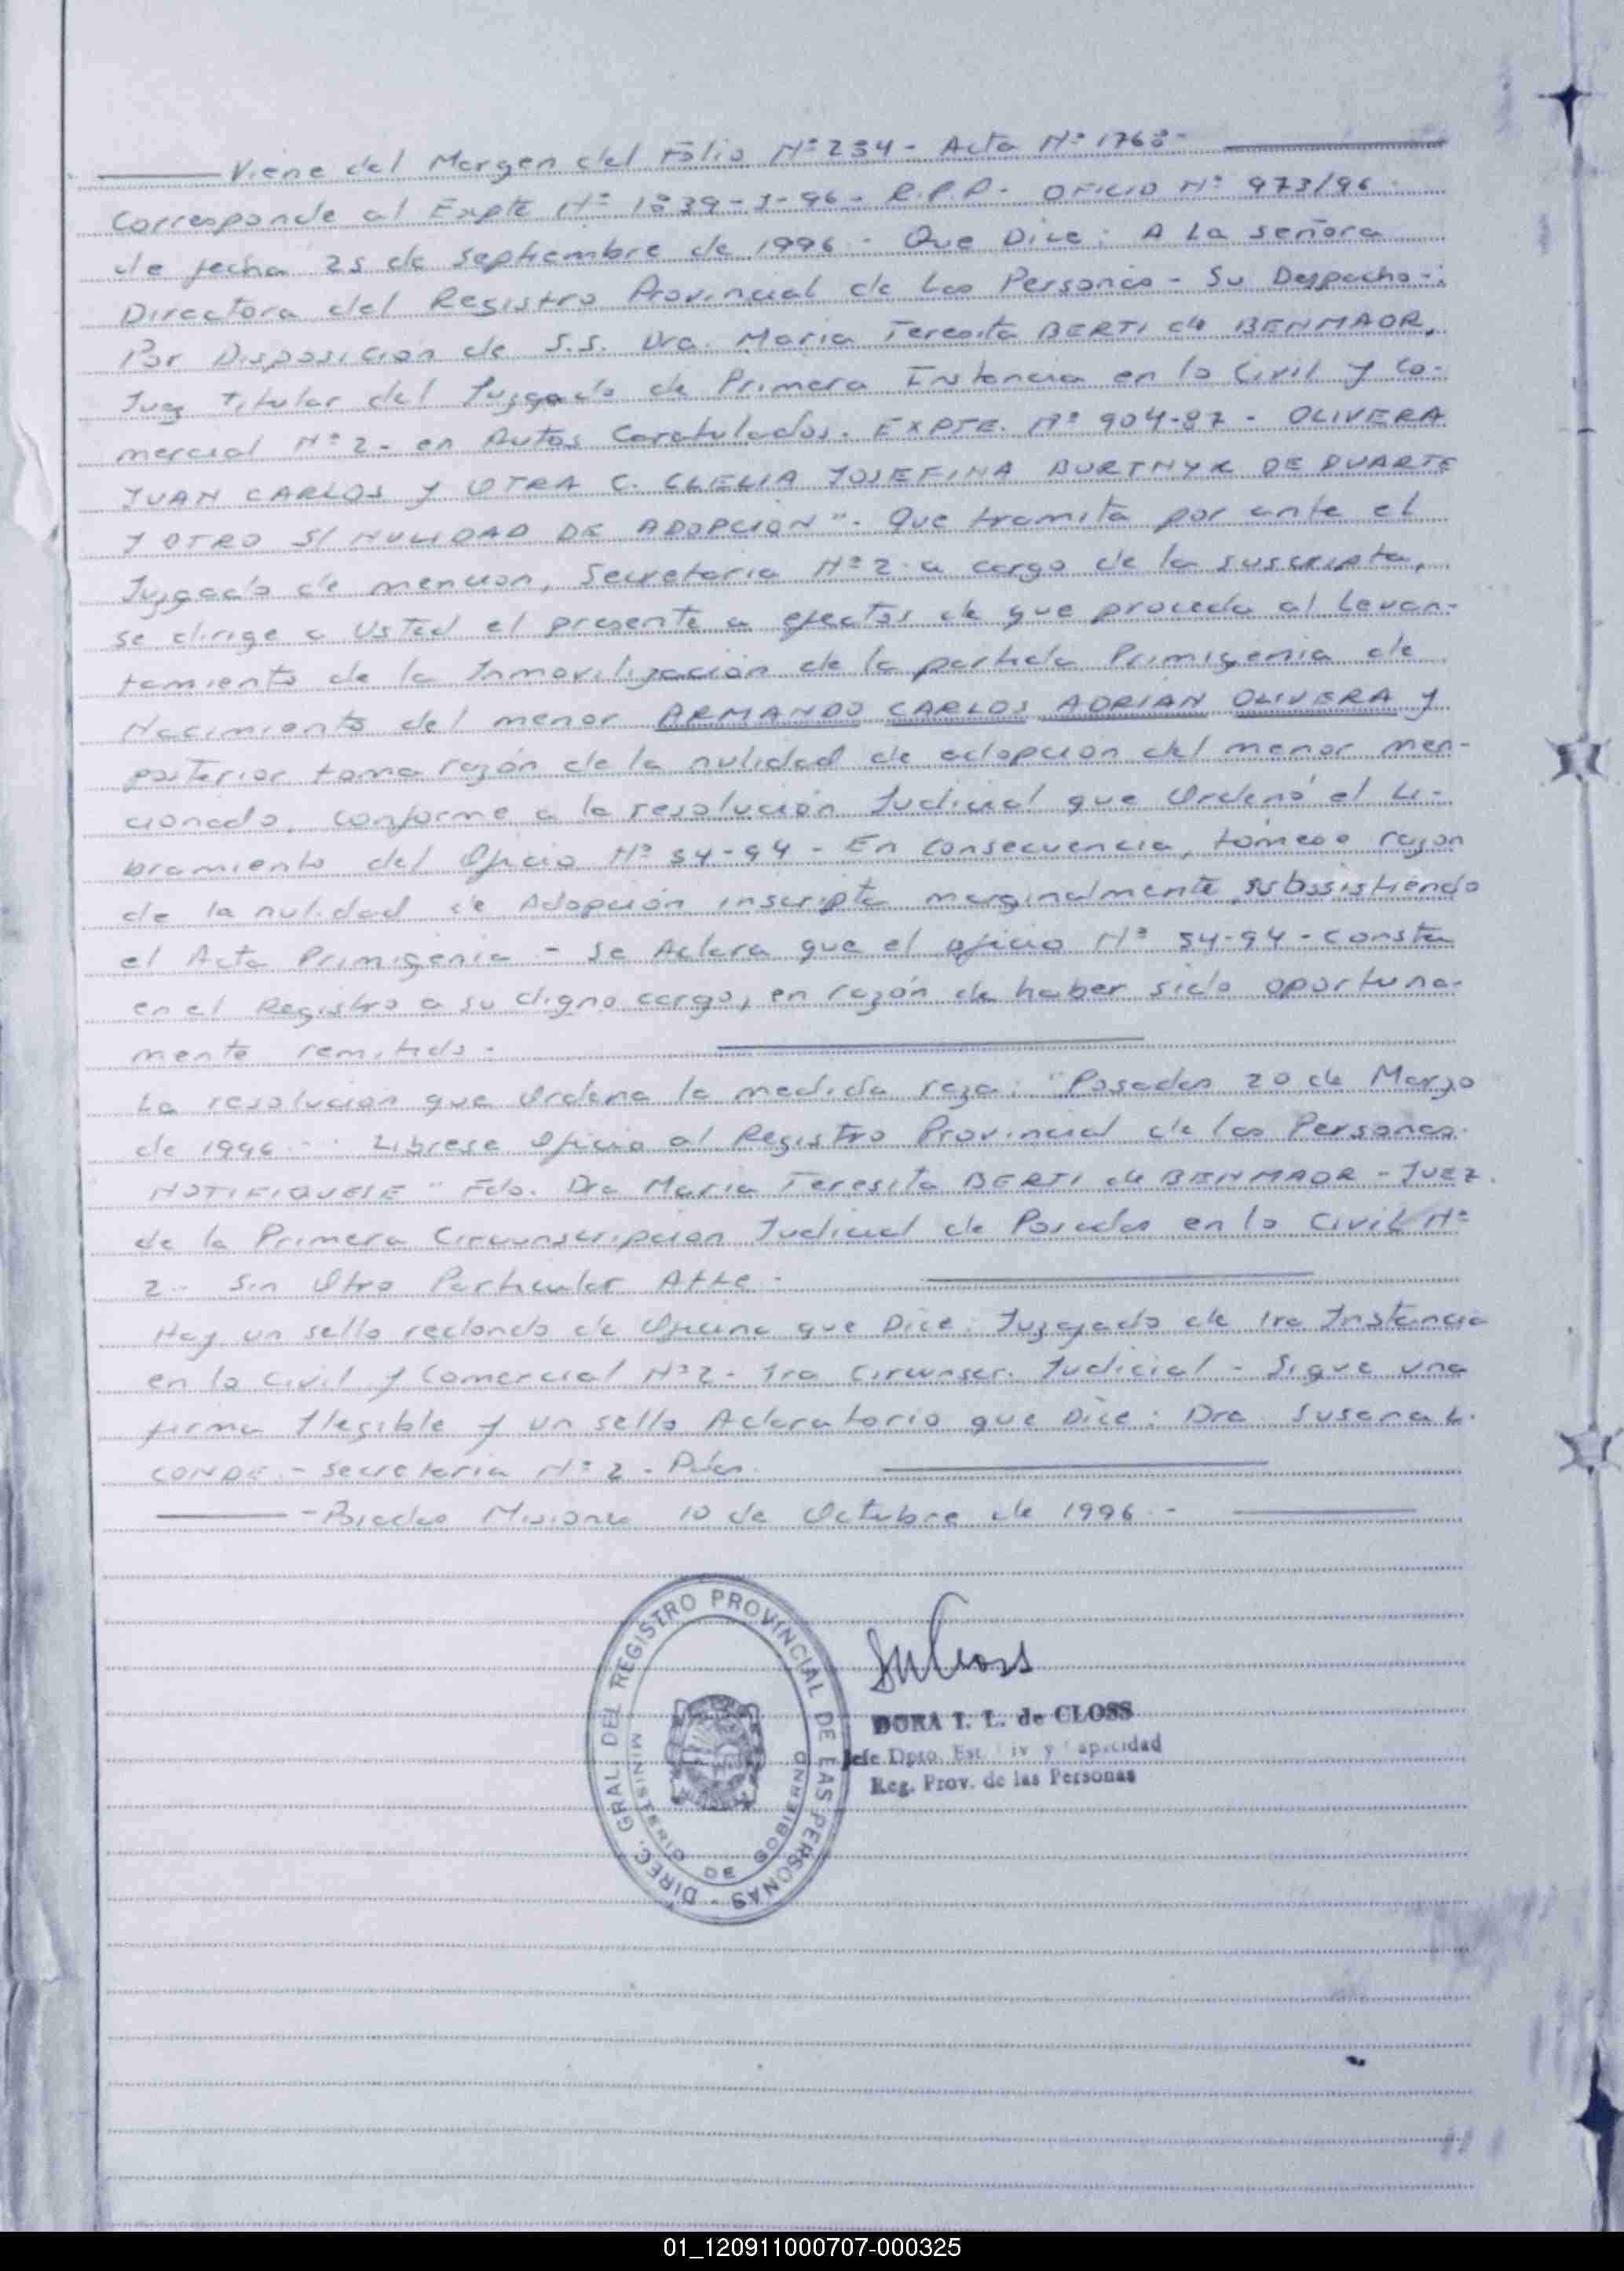 Viene del Margen del Folio Nº 234 - Acta Nº 1768 -
Corresponde al Expte Nº 1839-J-96 - R.P.P. - OFICIO Nº 973/96 -
de fecha 25 de septiembre de 1996 - Que Dice: A La señora
Directora del Registro Provincial de las Personas - Su Despacho -:
Por Disposicion de S.S. Dra. Maria Teresita BERTI de BENMAOR,
Juez Titular del Juzgado de Primera Instancia en lo Civil y Co-
mercial Nº 2 - en Autos Caratulados. EXPTE. Nº 904-87 - OLIVERA
JUAN CARLOS y OTRA C. CLELIA JOSEFINA BURTNYK DE DUARTE
Y OTRO S/ NULIDAD DE ADOPCION". Que tramita por ante el
Juzgado de mencion, Secretaria Nº 2 a cargo de la suscripta,
se dirige a Usted el presente a efectos de que proceda al Levan-
tamiento de la Inmovilización de la partida Primigenia de
Nacimiento del menor ARMANDO CARLOS ADRIAN OLIVERA y
posterior toma razón de la nulidad de adopcion del menor men-
cionado, conforme a la resolución Judicial que Ordenó el Li-
bramiento del Oficio Nº 54-94 - En consecuencia, tómese razon
de la nulidad de Adopción inscripta marginalmente, subsistiendo
el Acta Primigenia - Se Aclara que el oficio Nº 54-94 - consta
en el Registro a su digno cargo, en razón de haber sido oportuna-
mente remitido -
La resolucion que Ordena la medida reza: "Posadas 20 de Marzo
de 1996 - Librese Oficio al Registro Provincial de las Personas.
NOTIFIQUESE" Fdo. Dra Maria Teresita BERTI de BENMAOR - JUEZ.
de la Primera Circunscripcion Judicial de Posadas en lo Civil Nº
2 - Sin Otro Particular Atte -
Hay un sello redondo de Oficina que Dice: Juzgado de 1ra Instancia
en lo Civil y Comercial Nº 2 - 1ra Circunscr. Judicial - Sigue una
firma Ilegible y un sello Aclaratorio que Dice: Dra. Susana L.
CONDE - Secretaria Nº 2 - Pdas.
- Posadas Misiones 10 de Octubre de 1996 -
DIREC. GRAL. DEL REGISTRO PROVINCIAL DE LAS PERSONAS -
MINISTERIO DE GOBIERNO
DORA I. L. de CLOSS
Jefe Dpto. Est. iv y apacidad
Reg. Prov. de las Personas
01_120911000707-000325